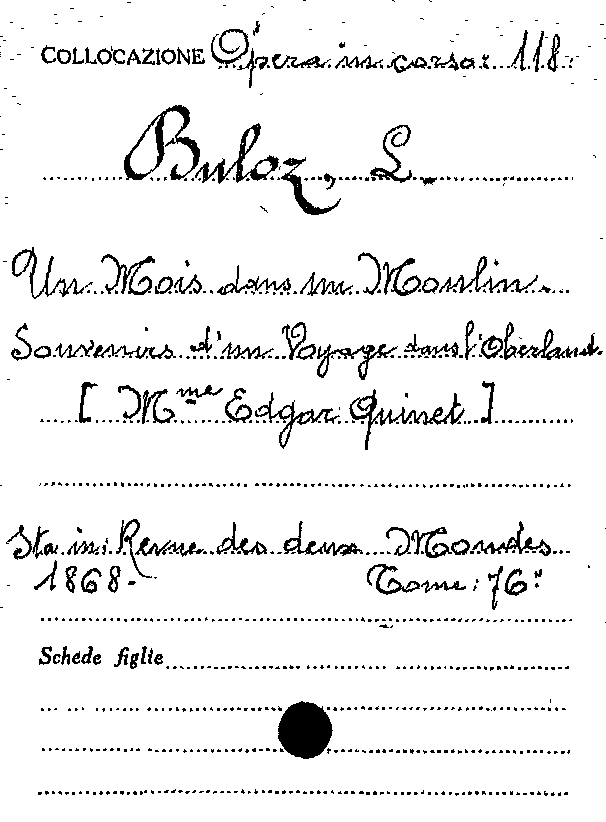 COLLOCAZIONE Opera in corso: 118.
Buloz, L.
Un Mois dans un Moulin.
Souvenirs d'un Voyage dans l'Oberland.
[ Mme Edgar Quinet ]
Sta in: Revue des deux Mondes
1868. Tome: 76º
Schede figlie